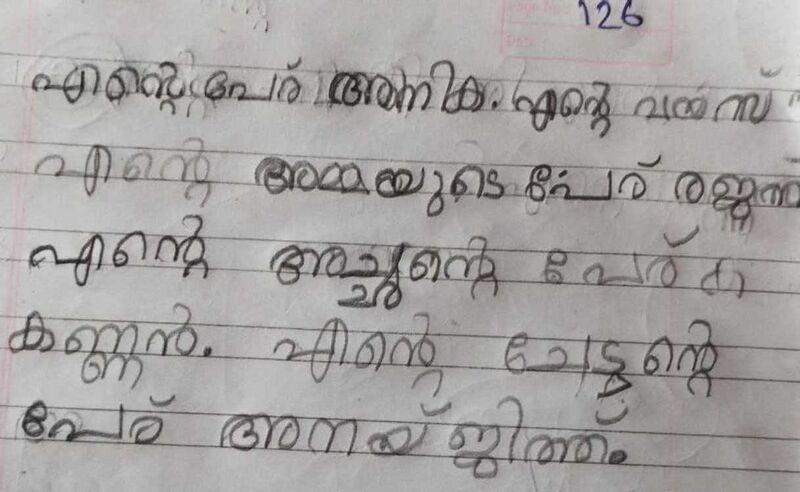 126
എന്റെ പേര് അനിക. എന്റെ വയസ്
എന്റെ അമ്മയുടെ പേര്
എന്റെ അച്ഛന്റെ പേര്
കണ്ണൻ. എന്റെ ചേട്ടന്റെ
പേര് അനയ്ജിത്ത്.